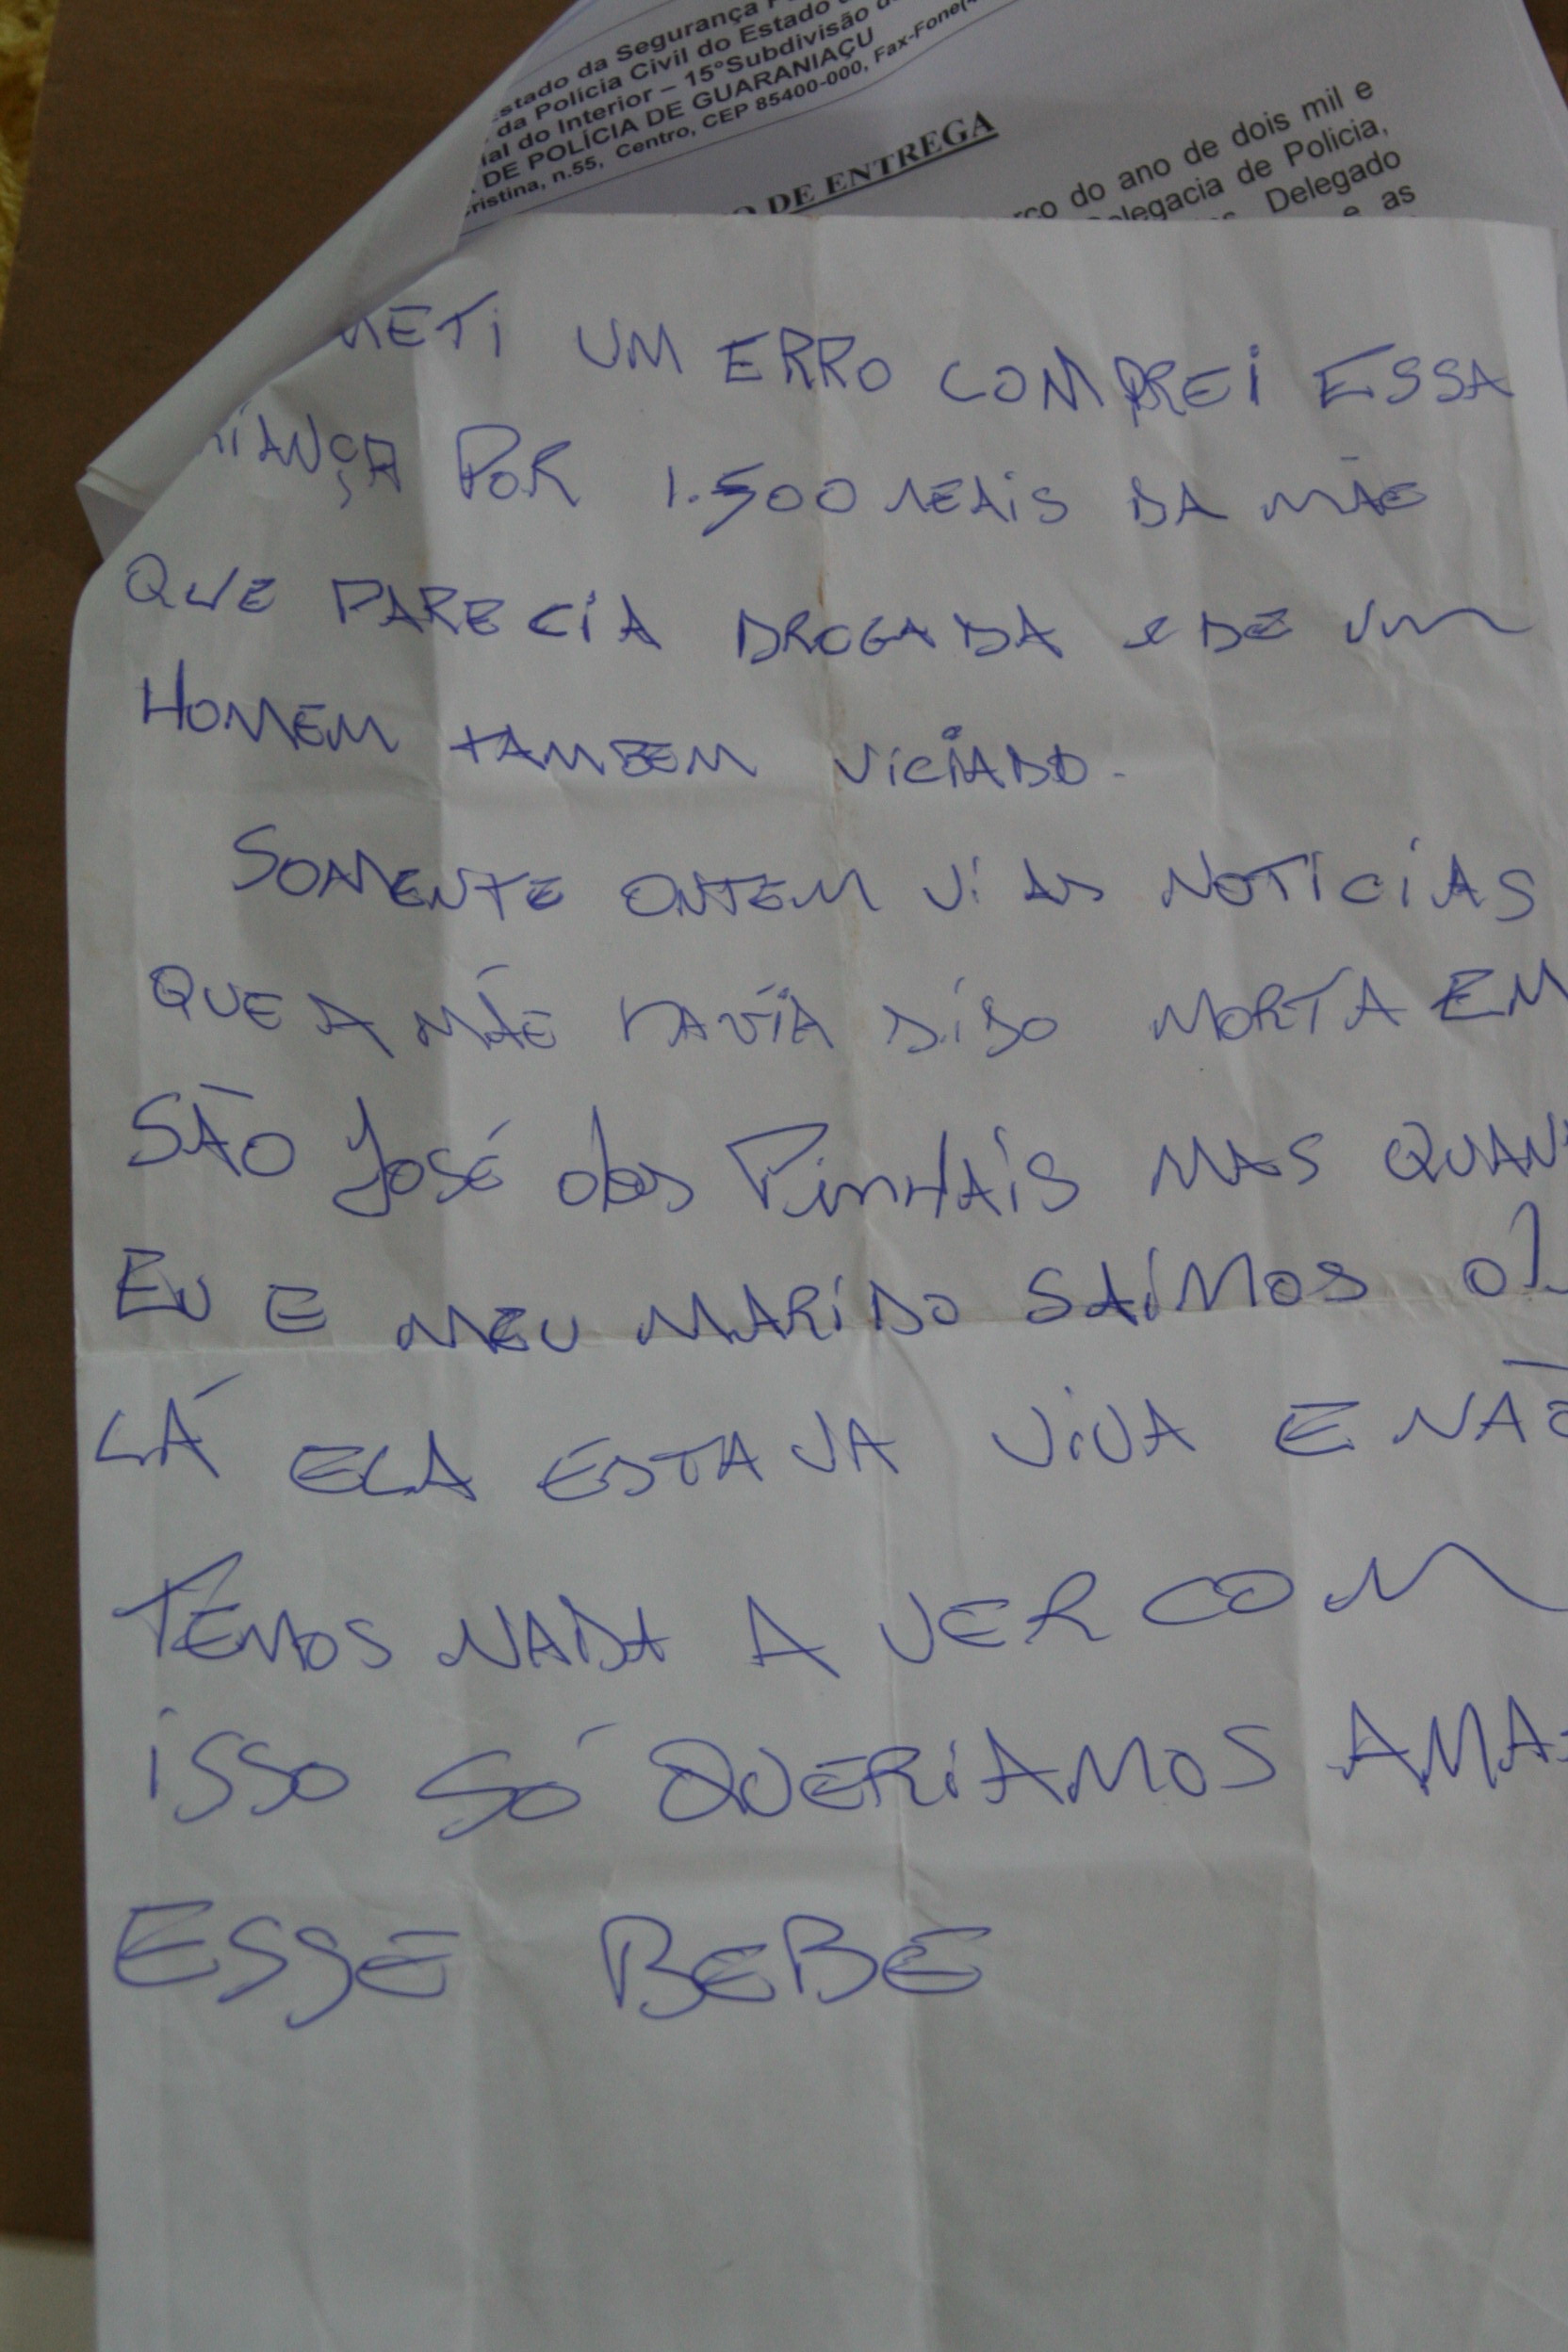 stado da Segurança
da Polícia Civil do Estado
ial do Interior – 15ºSubdivisão
DE POLÍCIA DE GUARANIAÇU
ristina, n.55, Centro, CEP 85400-000, Fax-Fone(
O DE ENTREGA
rço do ano de dois mil e
elegacia de Policia,
Delegado
e as
METI UM ERRO COMPREI ESSA
RIANÇA POR 1.500 REAIS DA MÃE
QUE PARECIA DROGADA E DE UM
HOMEM TAMBEM VICIADO.
SOMENTE ONTEM VI AS NOTICIAS
QUE A MÃE HAVIA SIDO MORTA EM
SÃO JOSÉ dos PINHAIS MAS QUAN
EU E MEU MARIDO SAÍMOS
LÁ ELA ESTAVA VIVA E NÃO
TEMOS NADA A VER COM
ISSO SÓ QUERIAMOS AMA
ESSE BEBE